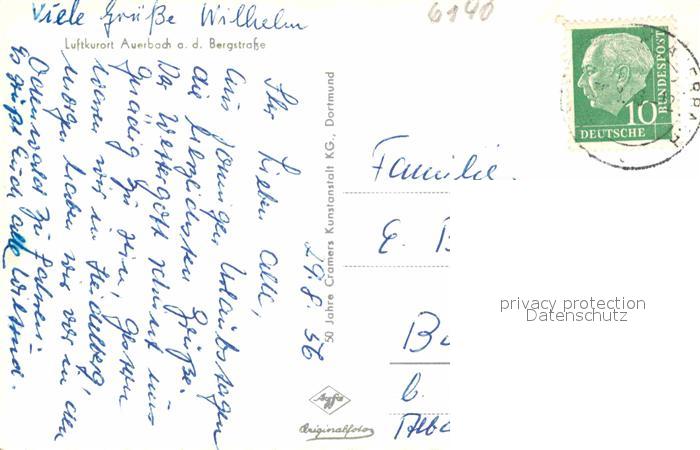 Viele Grüße Wilhelm
6140
Luftkurort Auerbach a. d. Bergstraße
Ihr Lieben alle,
Aus sonnigen Urlaubstagen
die herzlichsten Grüße.
Der Wettergott scheint uns
gnädig zu sein, Gestern
waren wir in Heidelberg,
morgen haben wir vor in den
Odenwald zu fahren.
Es grüßt Euch alle Wiltrud.
29.8.56
50 Jahre Cramers Kunstanstalt KG., Dortmund
Agfa
Originalfoto
DEUTSCHE
BUNDESPOST
10
Familie
E. B
Bu
b.
Albe
privacy protection
Datenschutz